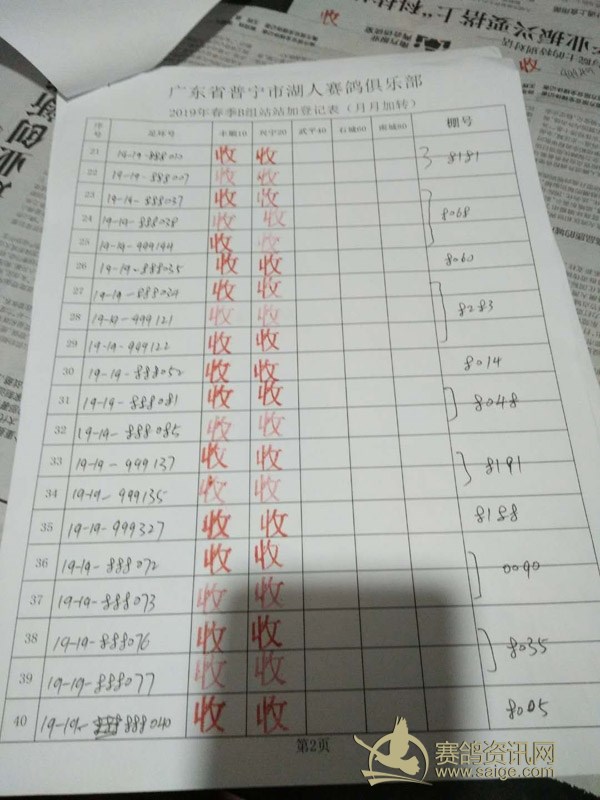 业振兴要搭上“科技
收
收
广东省普宁市湖人赛鸽俱乐部
2019年春季B组站站加登记表（月月加转）
序号 足环号 丰顺10 兴宁20 武平40 石城60 南城80 棚号
21 19-19-888020 收 收 8181
22 19-19-888007 收 收
23 19-19-888037 收 收 8068
24 19-19-888038 收 收
25 19-19-999194 收 收
26 19-19-888035 收 收 8060
27 19-19-888039 收 收 8283
28 19-19-999121 收 收
29 19-19-999122 收 收
30 19-19-888052 收 收 8014
31 19-19-888081 收 收 8048
32 19-19-888085 收 收
33 19-19-999137 收 收 8191
34 19-19-999135 收 收
35 19-19-999327 收 收 8188
36 19-19-888072 收 收 0090
37 19-19-888073 收 收
38 19-19-888076 收 收 8035
39 19-19-888077 收 收
40 19-19-888040 收 收 8005
第2页
赛鸽资讯网
www.saige.com